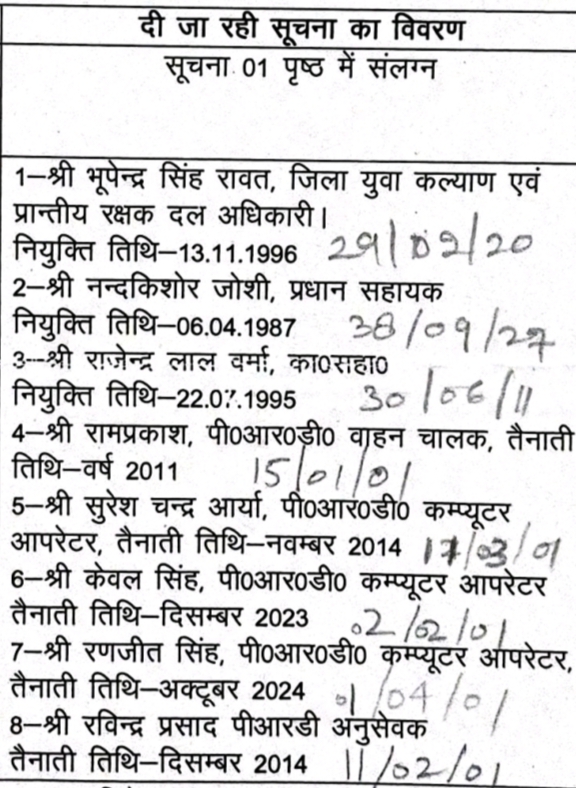 दी जा रही सूचना का विवरण
सूचना 01 पृष्ठ में संलग्न
1–श्री भूपेन्द्र सिंह रावत, जिला युवा कल्याण एवं
प्रान्तीय रक्षक दल अधिकारी।
नियुक्ति तिथि–13.11.1996 29/02/20
2–श्री नन्दकिशोर जोशी, प्रधान सहायक
नियुक्ति तिथि–06.04.1987 38/09/27
3–श्री राजेन्द्र लाल वर्मा, का0सहा0
नियुक्ति तिथि–22.07.1995 30/06/11
4–श्री रामप्रकाश, पी0आर0डी0 वाहन चालक, तैनाती
तिथि–वर्ष 2011 15/01/01
5–श्री सुरेश चन्द्र आर्या, पी0आर0डी0 कम्प्यूटर
आपरेटर, तैनाती तिथि–नवम्बर 2014 17/03/01
6–श्री केवल सिंह, पी0आर0डी0 कम्प्यूटर आपरेटर
तैनाती तिथि–दिसम्बर 2023 02/02/01
7–श्री रणजीत सिंह, पी0आर0डी0 कम्प्यूटर आपरेटर,
तैनाती तिथि–अक्टूबर 2024 01/04/01
8–श्री रविन्द्र प्रसाद पीआरडी अनुसेवक
तैनाती तिथि–दिसम्बर 2014 11/02/01